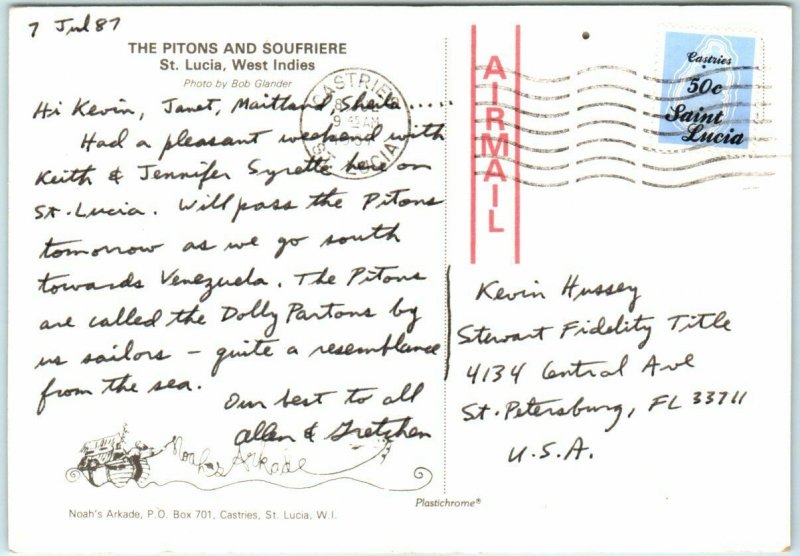 7 Jul 87
THE PITONS AND SOUFRIERE
St. Lucia, West Indies
Photo by Bob Glander
Hi Kevin, Janet, Maitland, Sheila .....
Had a pleasant weekend with
Keith & Jennifer Syrette here on
St. Lucia. Will pass the Pitons
tomorrow as we go south
towards Venezuela. The Pitons
are called the Dolly Partons by
us sailors - quite a resemblance
from the sea.
Our best to all
Allen & Gretchen
Noah's Arkade
Noah's Arkade, P.O. Box 701, Castries, St. Lucia, W.I.
Plastichrome®
CASTRIES
9 45 AM
ST. LUCIA
AIRMAIL
Castries
50c
Saint
Lucia
Kevin Hussey
Stewart Fidelity Title
4134 Central Ave
St. Petersburg, FL 33711
U.S.A.